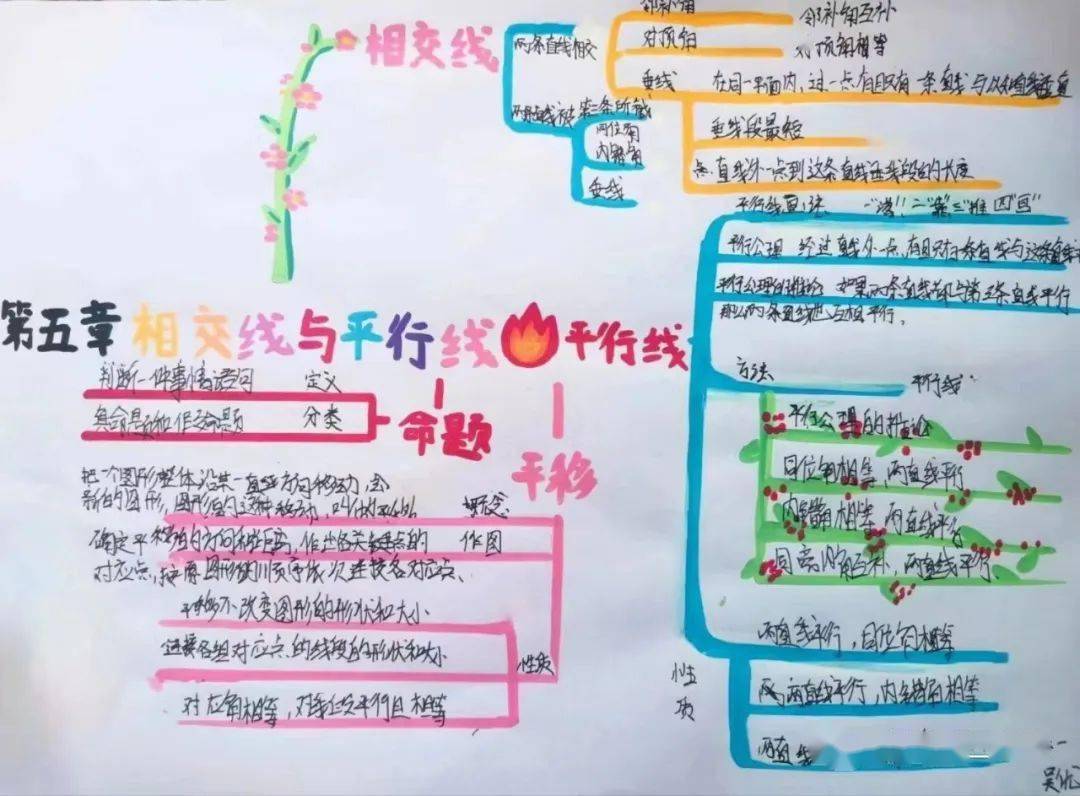 相交线
两条直线相交
邻补角 邻补角互补
对顶角 对顶角相等
垂线 在同一平面内,过一点有且只有一条直线与已知直线垂直
垂线段最短
直线外一点到这条直线垂线段的长度
两条直线被第三条所截
同位角
内错角
垂线
第五章 相交线与平行线
平行线
平行线画法 一"落" 二"靠" 三"推" 四"画"
平行公理 经过直线外一点,有且只有一条直线与这条直线
平行公理的推论 如果两条直线都与第三条直线平行
那么两条直线也互相平行。
方法 平行线
平行公理的推论
同位角相等,两直线平行
内错角相等,两直线平行
同旁内角互补,两直线平行。
性质
两直线平行,同位角相等
两直线平行,内错角相等
两直线
命题
判断一件事情语句 定义
真命题和假命题 分类
平移
把一个图形整体沿某一直线方向移动,会
新的图形,图形的这种移动,叫做 概念
确定平移的方向和距离,作出各关键点的 作图
对应点,按原图形顺序依次连接各对应点、
性质
平移不改变图形的形状和大小
连接各组对应点的线段的形状和大小
对应角相等,对线段平行且相等